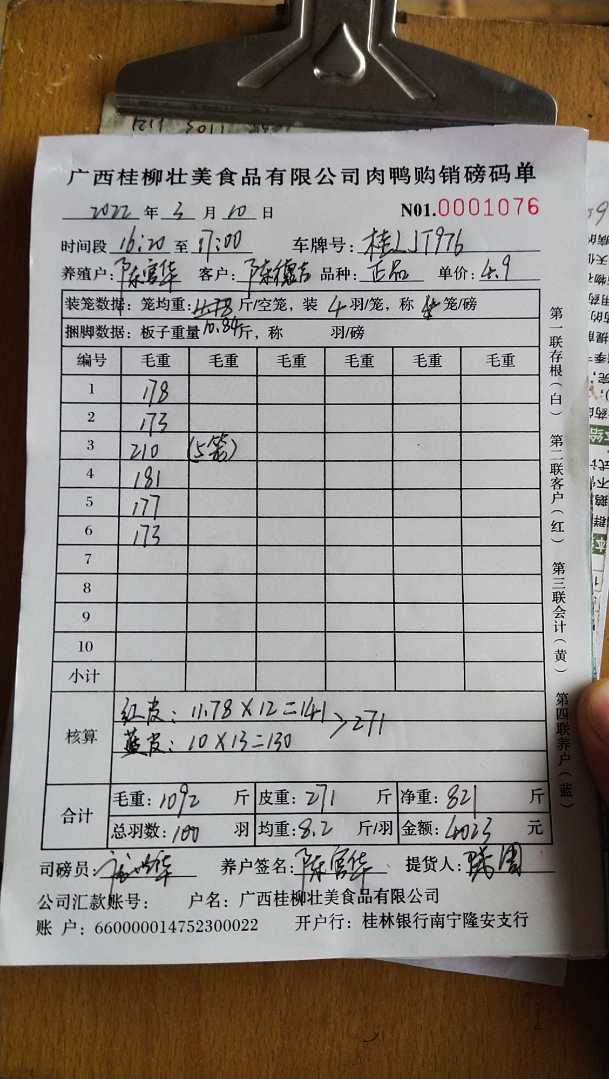 广西桂柳壮美食品有限公司肉鸭购销磅码单
2022 年 3 月 10 日 N01.0001076
时间段 16:20 至 17:00 车牌号: 桂LJT976
养殖户: 陈官华 客户: 陈德吉 品种: 正品 单价: 4.9
装笼数据: 笼均重: 11.78 斤/空笼, 装 4 羽/笼, 称 4 笼/磅
捆脚数据: 板子重量 10.84 斤, 称 羽/磅
编号 毛重 毛重 毛重 毛重 毛重 毛重
1 178
2 173
3 210 (5笼)
4 181
5 177
6 173
7
8
9
10
小计
核算
红皮: 11.78×12=141 >271
蓝皮: 10×13=130
合计
毛重: 1092 斤 皮重: 271 斤 净重: 821 斤
总羽数: 100 羽 均重: 8.2 斤/羽 金额: 4023 元
司磅员: 养户签名: 陈官华 提货人:
公司汇款账号: 户名: 广西桂柳壮美食品有限公司
账 户: 660000014752300022 开户行: 桂林银行南宁隆安支行
第一联存根(白) 第二联客户(红) 第三联会计(黄) 第四联养户(蓝)